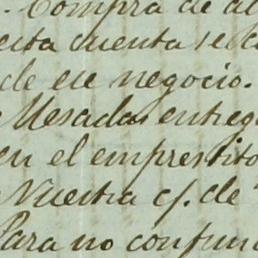 . Compra de al
esta cuenta se c
de ese negocio.
Mesadas entreg
en el emprestito
Nuestra c/. de
Para no confun